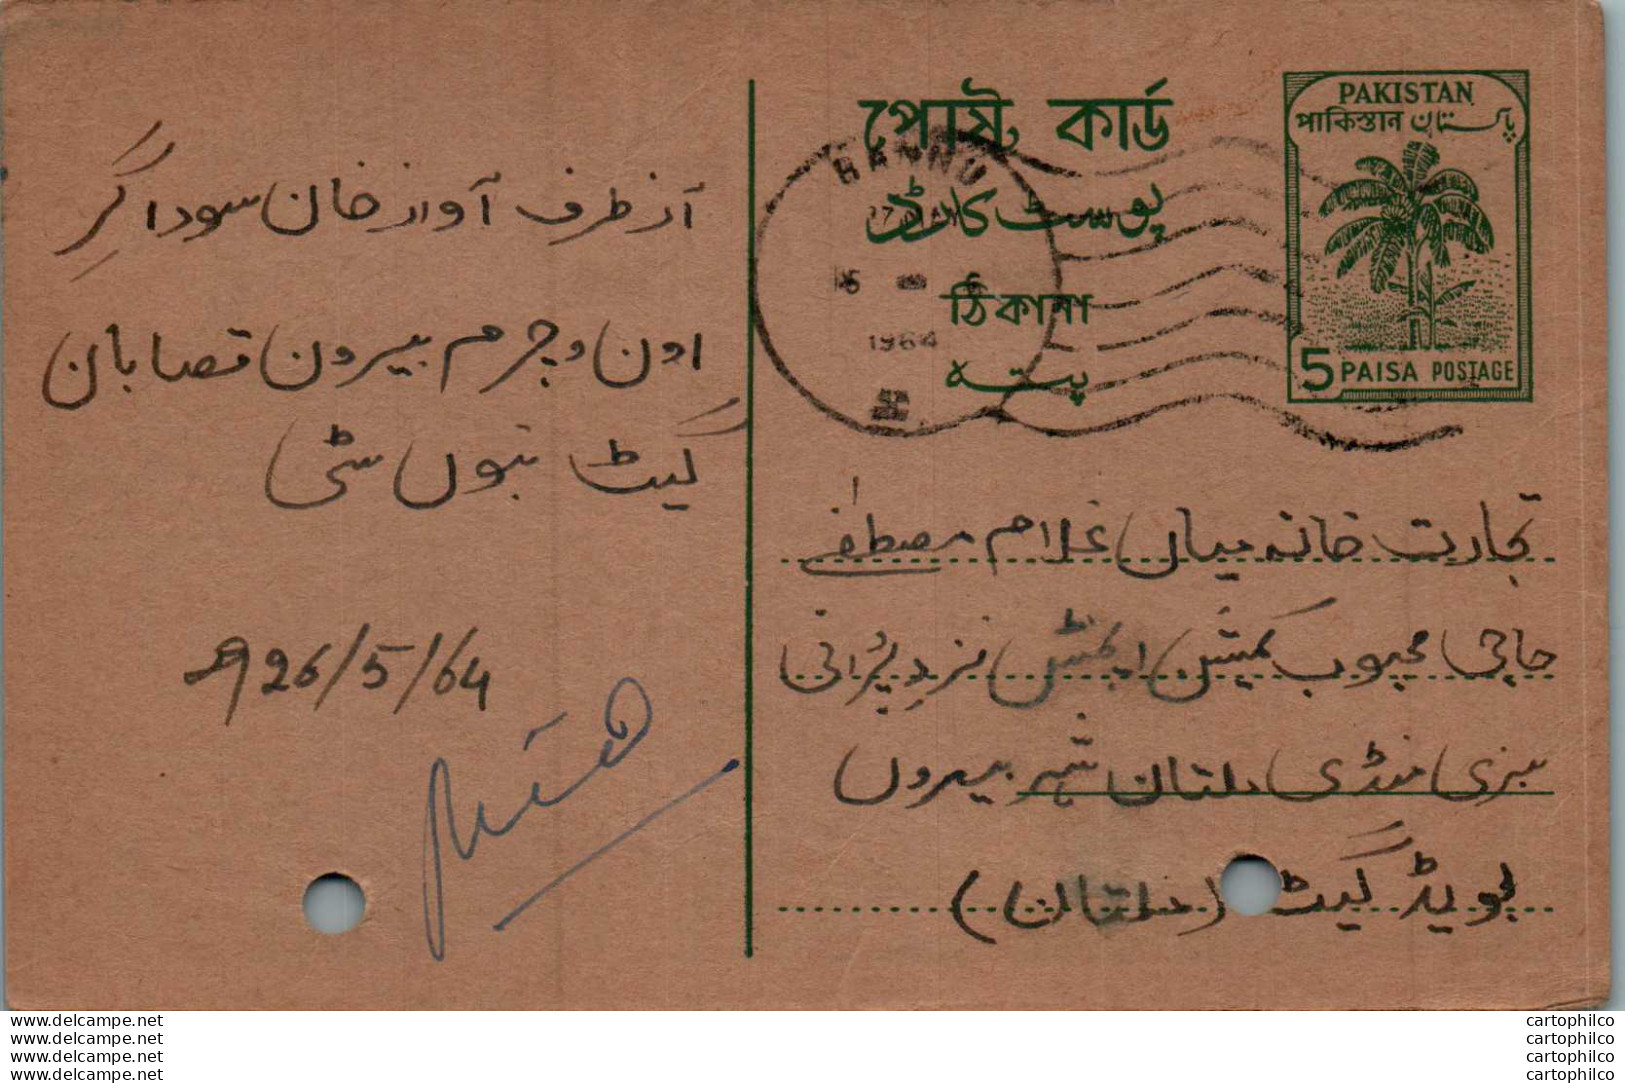 از طرف آواز خان سوداگر
اون و چرم بیرون قصابان
گیٹ بنوں سٹی
26/5/64
পোষ্ট কার্ড
پوسٹ کارڈ
ঠিকানা
پتہ
BANNU
1964
PAKISTAN
পাকিস্তান پاکستان
5 PAISA POSTAGE
تجارت خانہ میاں غلام مصطفٰے
حاجی محبوب کمیشن ایجنٹس نزد پرانی
سبزی منڈی ملتان شہر بیرون
بوہڑ گیٹ (ملتان)
www.delcampe.net
www.delcampe.net
www.delcampe.net
www.delcampe.net
cartophilco
cartophilco
cartophilco
cartophilco